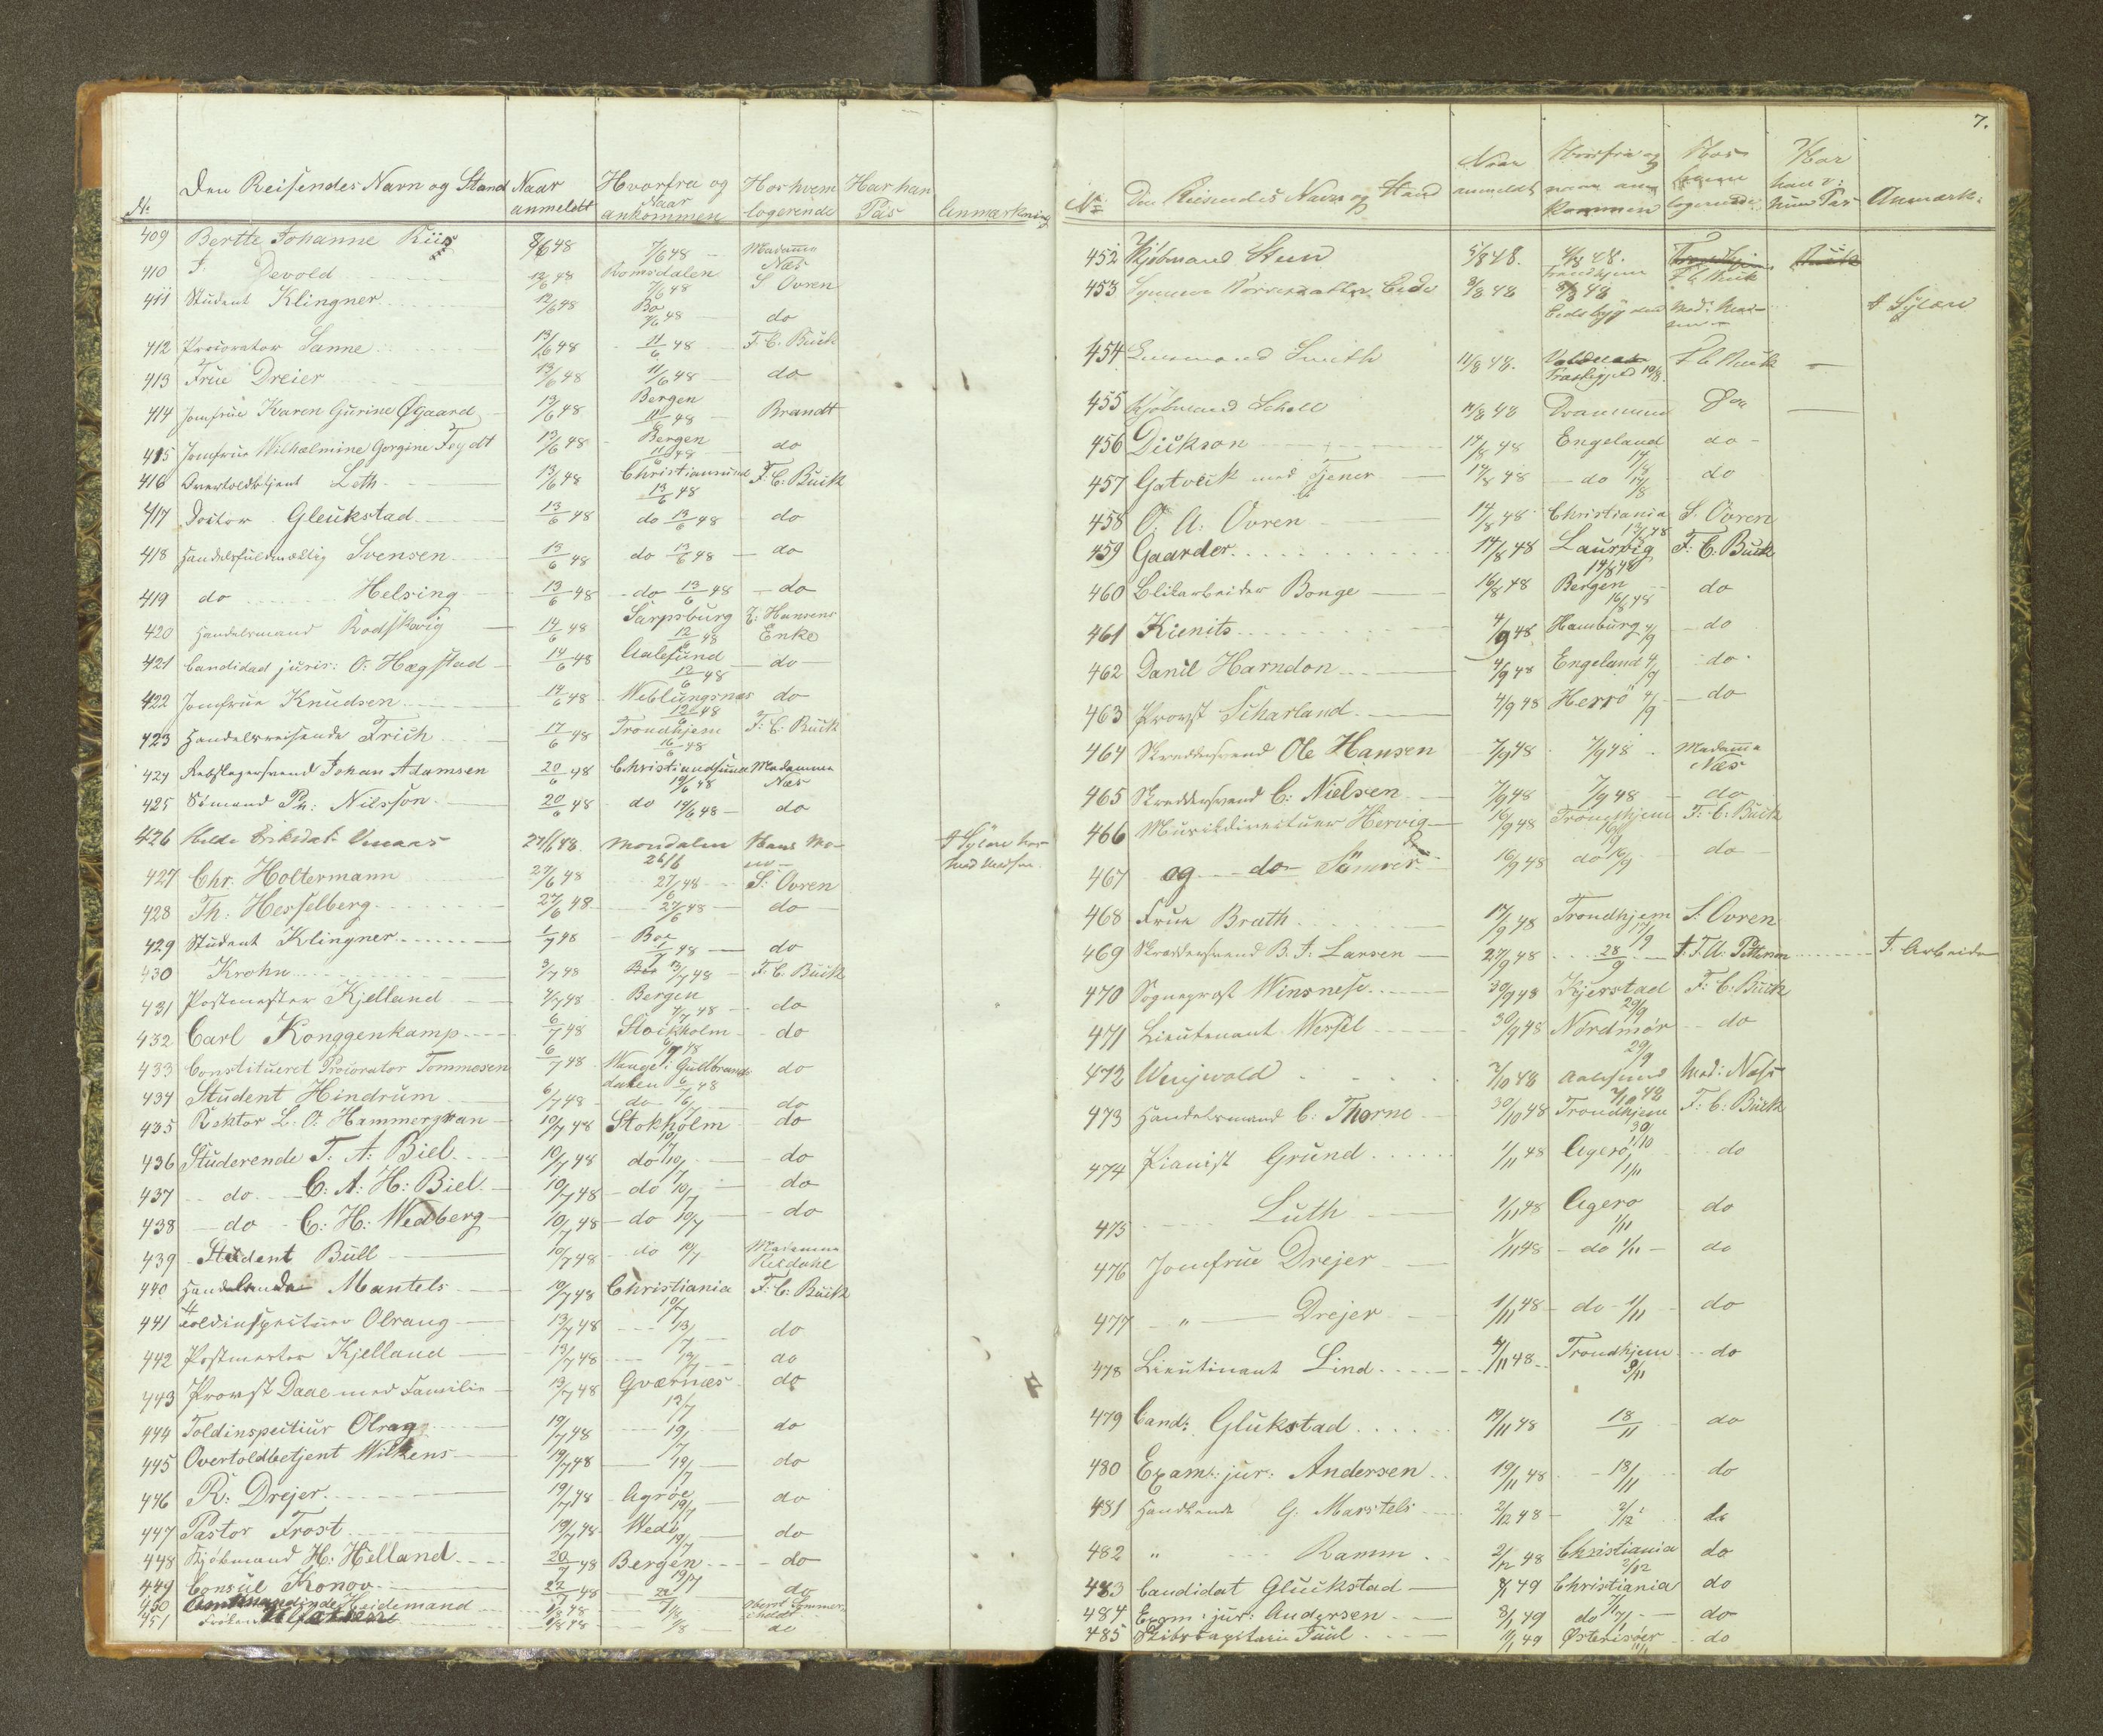 No Den Reisendes Navn og Stand Naar anmeldt Hvorfra og Naar ankommen Hos hvem logerende Har han Pas Anmærkning
409 Berthe Johanne Riis 8/6 48 7/6 48 Madame Næs
410 J. Devold 12/6 48 Romsdalen 7/6 48 S Ovren
411 Student Klingner 12/6 48 Bo 7/6 48 do
412 Procorator Sanne 13/6 48 11/6 48 F. C. Buck
413 Frue Dreier 13/6 48 11/6 48 do
414 Jomfrue Karen Gurine Øgaard 13/6 48 Bergen 11/6 48 Brandt
415 Jomfrue Wilhelmine Gorgine Feydt 13/6 48 Bergen 11/6 48 do
416 Overtoldbtjent Leth 13/6 48 Christiansund 13/6 48 F: C: Buck
417 Doctor Gleukstad 13/6 48 do 13/6 48 do
418 Handelsfuldmægtig Svensen 13/6 48 do 13/6 48 do
419 do Helsing 13/6 48 do 13/6 48 do
420 Handelsmand Rodskovig 14/6 48 Sarpsburg 12/6 48 Z: Hansens Enke
421 Candidad juris: O: Hægstad 14/6 48 Aalesund 12/6 48 do
422 Jomfrue Knudsen 14/6 48 Weblungsnæs 12/6 48 do
423 Handelsreisende Frich 17/6 48 Trondhjem 16/6 48 F: C: Buck
424 Rebslagersvend Johan Adamsen 20/6 48 Christiansund 19/6 48 Madamme Næs
425 Sømand Pn: Nilsson 20/6 48 do 19/6 48 do
426 27/6 48 26/6 Hans Mo-
427 Chr: Holtermann 27/6 48 27/6 48 S: Ovren
428 Th: Hesselberg 27/6 48 27/6 48 do
429 Student Klingner 1/7 48 Boe 1/7 48 do
430 Krohn 3/7 48 3/7 48 F: C: Buck
431 Postmester Kjelland 4/7 48 Bergen 4/7 48 do
432 Carl Konggenkamp 6/7 48 Stockholm 6/7 48 do
433 Constitueret Procorator Tommesen 6/7 48 Waage i Gulbrandsdalen 6/7 48 do
434 Student Hindrum 6/7 48 do 6/7 do
435 Rektor L. O. Hammergran 10/7 48 Stokholm 10/7 do
436 Studerende T: A: Biel 10/7 48 do 10/7 do
437 do C: A: H: Biel 10/7 48 do 10/7 do
438 do C: H: Wedberg 10/7 48 do 10/7 do
439 Student Bull 10/7 48 do 10/7 Madamme Rekdahl
440 Handlende Mantels 10/7 48 Christiania 10/7 F: C: Buck
441 Toldinspecteur Olrang 13/7 48 13/7 do
442 Postmester Kjelland 13/7 48 13/7 do
443 Provst Daae med Familie 13/7 48 Qværnæs 12/7 do
444 Toldinspectiur Olrag 19/7 48 19/7 do
445 Overtoldbetjent Wilkens 19/7 48 19/7 do
446 R: Drejer 19/7 48 Agrøe 19/7 do
447 Pastor Frost 19/7 48 Wedø 19/7 do
448 Kjøbmand H: Helland 20/7 48 Bergen 19/7 do
449 Consul Konov 22/7 48 22/7 do
450 Amtmandinde Heidemand 1/8 48 1/8 Oberst Sommerscheldt
451 Frøken 1/8 48 1/8 do
7.
No Den Reisendes Navn og Stand Naar anmeldt Hvorfra og naar ankommen Hos hvem logerende Har han Pas Anmærk:
452 Kjøbmand Steen 5/8 48. 4/8 48. Trondhjem F C Buck
453 9/8 48 8/8 48 Mad:
454 Smith 11/8 48. F C Buck
455 Kjøbmand Scholl 14/8 48 Drammen do
456 Dickson 14/8 48 Engeland 14/8 do
457 Gatveik med Tjener 14/8 48 do 14/8 do
458 O: A: Ovren 14/8 48 Christiania 13/8 48 S. Ovren
459 Gaarder 14/8 48 Laurvig 14/8 48 F: C: Buck
460 Blikarbeider Bonge 16/8 48 Bergen 16/8 48 do
461 Kienits 4/9 48 Hamburg 4/9 do
462 Danil Harndon 4/9 48 Engeland 4/9 do
463 Provst Scharland 4/9 48 Herrö 4/9 do
464 Skreddersvend Ole Hansen 7/9 48 7/9 48 Madame Næs
465 Skreddersvend C: Nielsen 7/9 48 7/9 48 do
466 Musikdirecteur Hervig 16/9 48 Trondhjem 16/9 F: C: Buck
467 og do Sömrer 16/9 48 do 16/9 do
468 Frue Brath 17/9 48 Trondhjem 17/9 S: Ovren
469 Skreddersvend B. J. Larsen 27/9 48 28/9 F. A: Pettersen F. Arbeide
470 Sogneprost Winsnese 30/9 48 Kjerstad 29/9 F: C: Buck
471 Lieutenant Wessel 30/9 48 Nordmør 29/9 do
472 Wenjwold 7/10 48 Aalesund 7/10 48 Mad: Næss
473 Handelsmand C: Thorne 30/10 48 Trondhjem 30/10 F: C: Buck
474 Pianist Grund 1/11 48 Agerø 1/11 do
475 Luth 1/11 48 Agerø 1/11 do
476 Jomfrue Drejer 1/11 48 do 1/11 do
477 " Drejer 1/11 48 do 1/11 do
478 Lieutinant Lind 9/11 48 Trondhjem 9/11 do
479 Cand: Glukstad 19/11 48 18/11 do
480 Exam: jur: Andersen 19/11 48 18/11 do
481 Handlende G. Marstels 2/12 48 2/12 do
482 " Ramm 2/12 48 Christiania 2/12 do
483 Candidat Gluckstad 8/1 49 Christiania 7/1 do
484 Exam: jur: Andersen 8/1 49 do 7/1 do
485 Skibscapitain Juul 11/1 49 Østerisøer 11/1 do